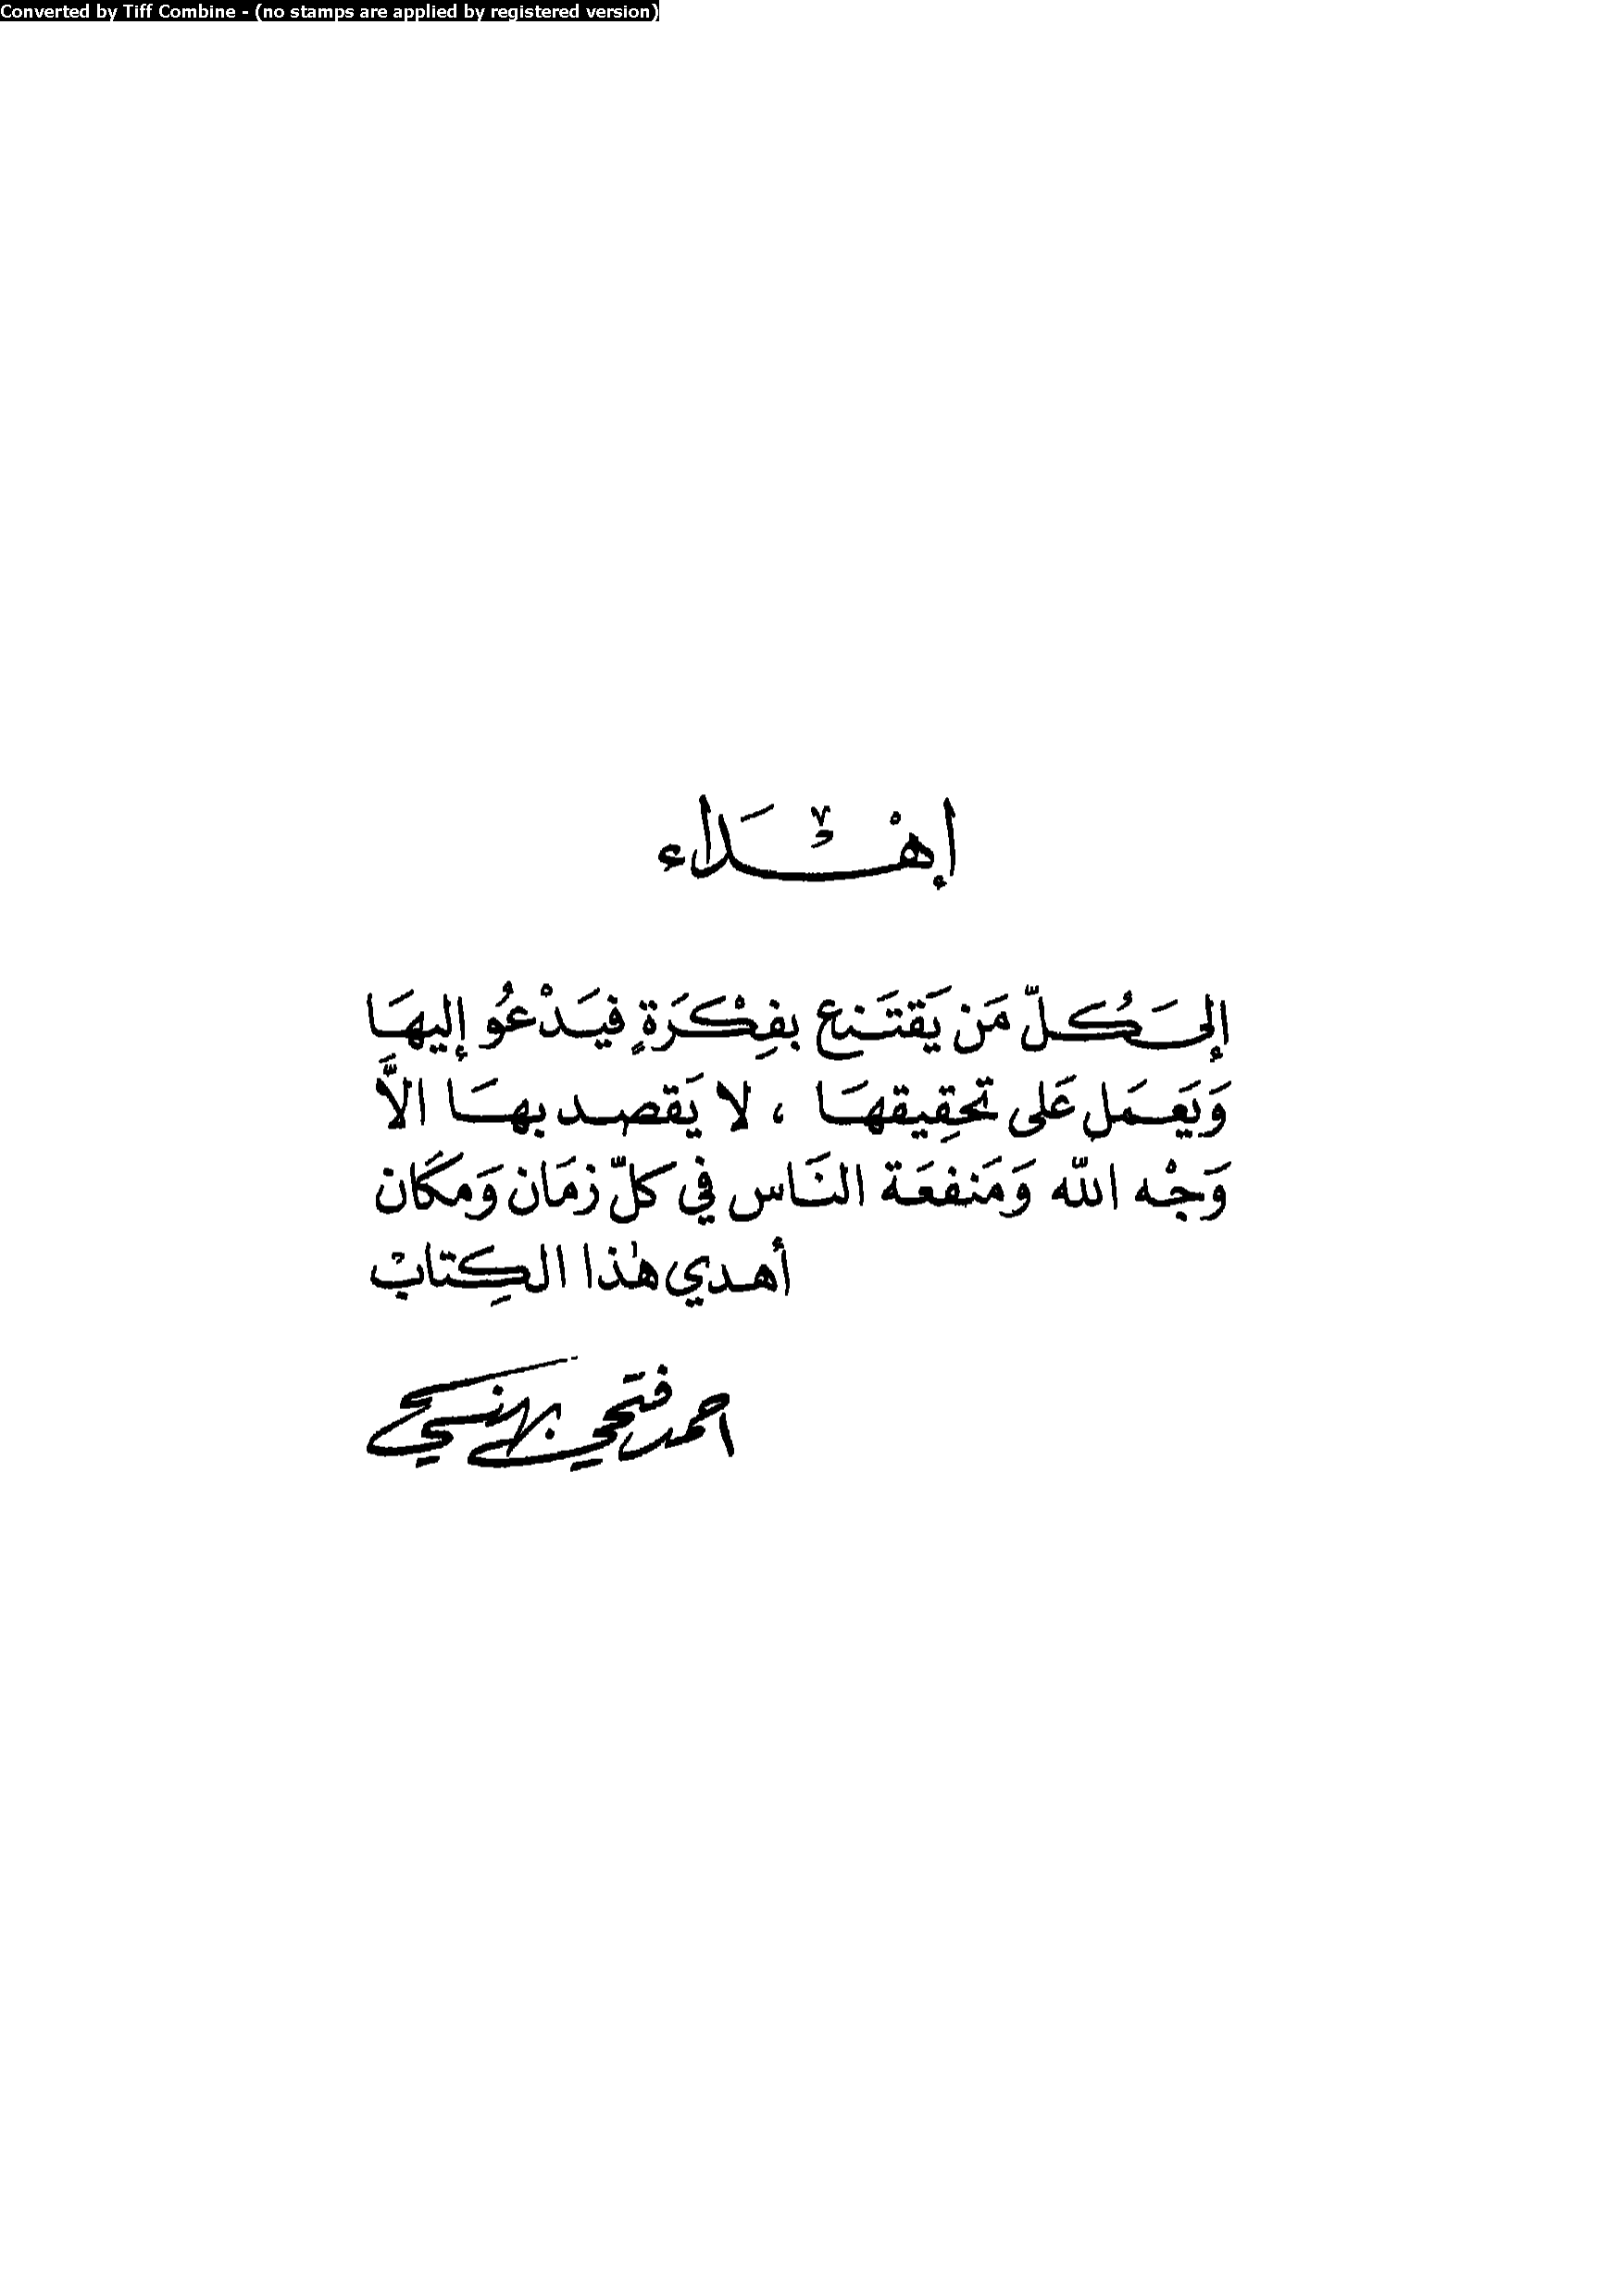 Converted by Tiff Combine - (no stamps are applied by registered version)
إهْدَاء
إلىَ كُلّ مَن يَقتَنع بفِكْرَةٍ فيَدْعُو إليهَا
وَيَعمَل عَلى تحقِيقهَا ، لا يَقصد بهَا الاَّ
وَجْه الله وَمَنفعَة النَاس في كلّ زمَان وَمكَان
أهدي هٰذا الكِتابْ
احمد فتحي بهنسي